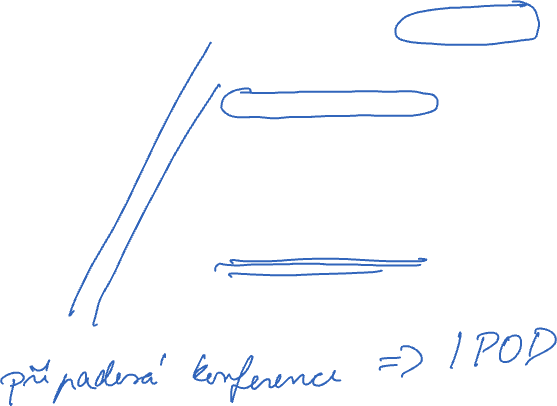 případová konference => IPOD